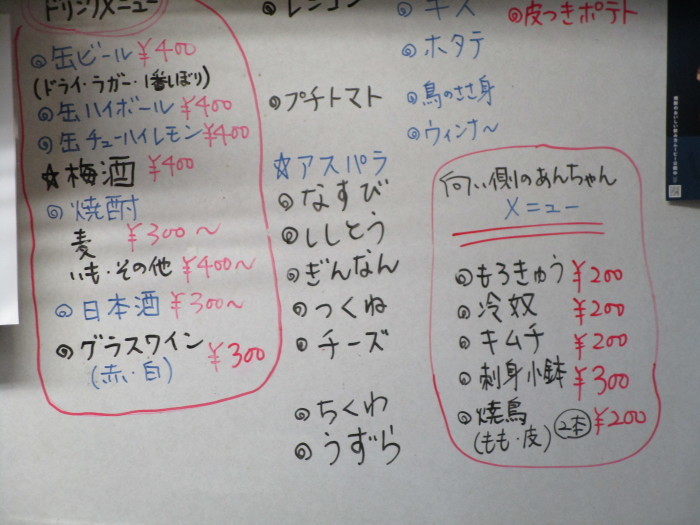 ドリンクメニュー
◎缶ビール ¥400
(ドライ・ラガー・1番しぼり)
◎缶ハイボール ¥400
◎缶チューハイレモン ¥400
☆梅酒 ¥400
◎焼酎
麦 ¥300〜
いも・その他 ¥400〜
◎日本酒 ¥300〜
◎グラスワイン ¥300
(赤・白)
◎レンコン
◎プチトマト
☆アスパラ
◎なすび
◎ししとう
◎ぎんなん
◎つくね
◎チーズ
◎ちくわ
◎うずら
◎キス
◎ホタテ
◎鳥のささ身
◎ウィンナ〜
◎皮つきポテト
向い側のあんちゃん
メニュー
◎もろきゅう ¥200
◎冷奴 ¥200
◎キムチ ¥200
◎刺身小鉢 ¥300
◎焼鳥 2本 ¥200
(もも・皮)